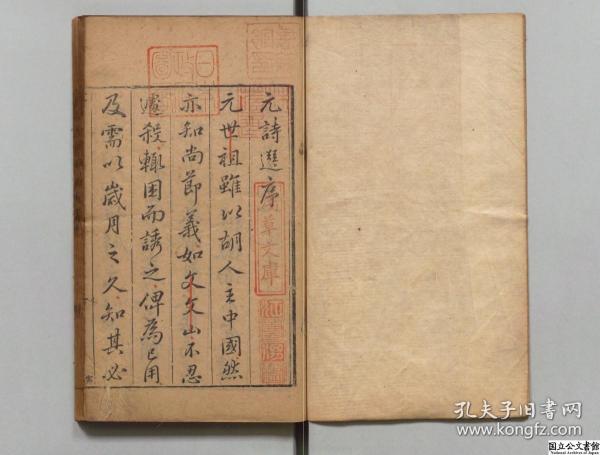 元詩選序
元世祖雖以胡人主中國然
亦知尚節義如文文山不忍
遽殺輙困而誘之俾為己用
及需以歲月之久知其必
草文庫
孔夫子旧书网
www.kongfz.com
国立公文書館
National Archives of Japan